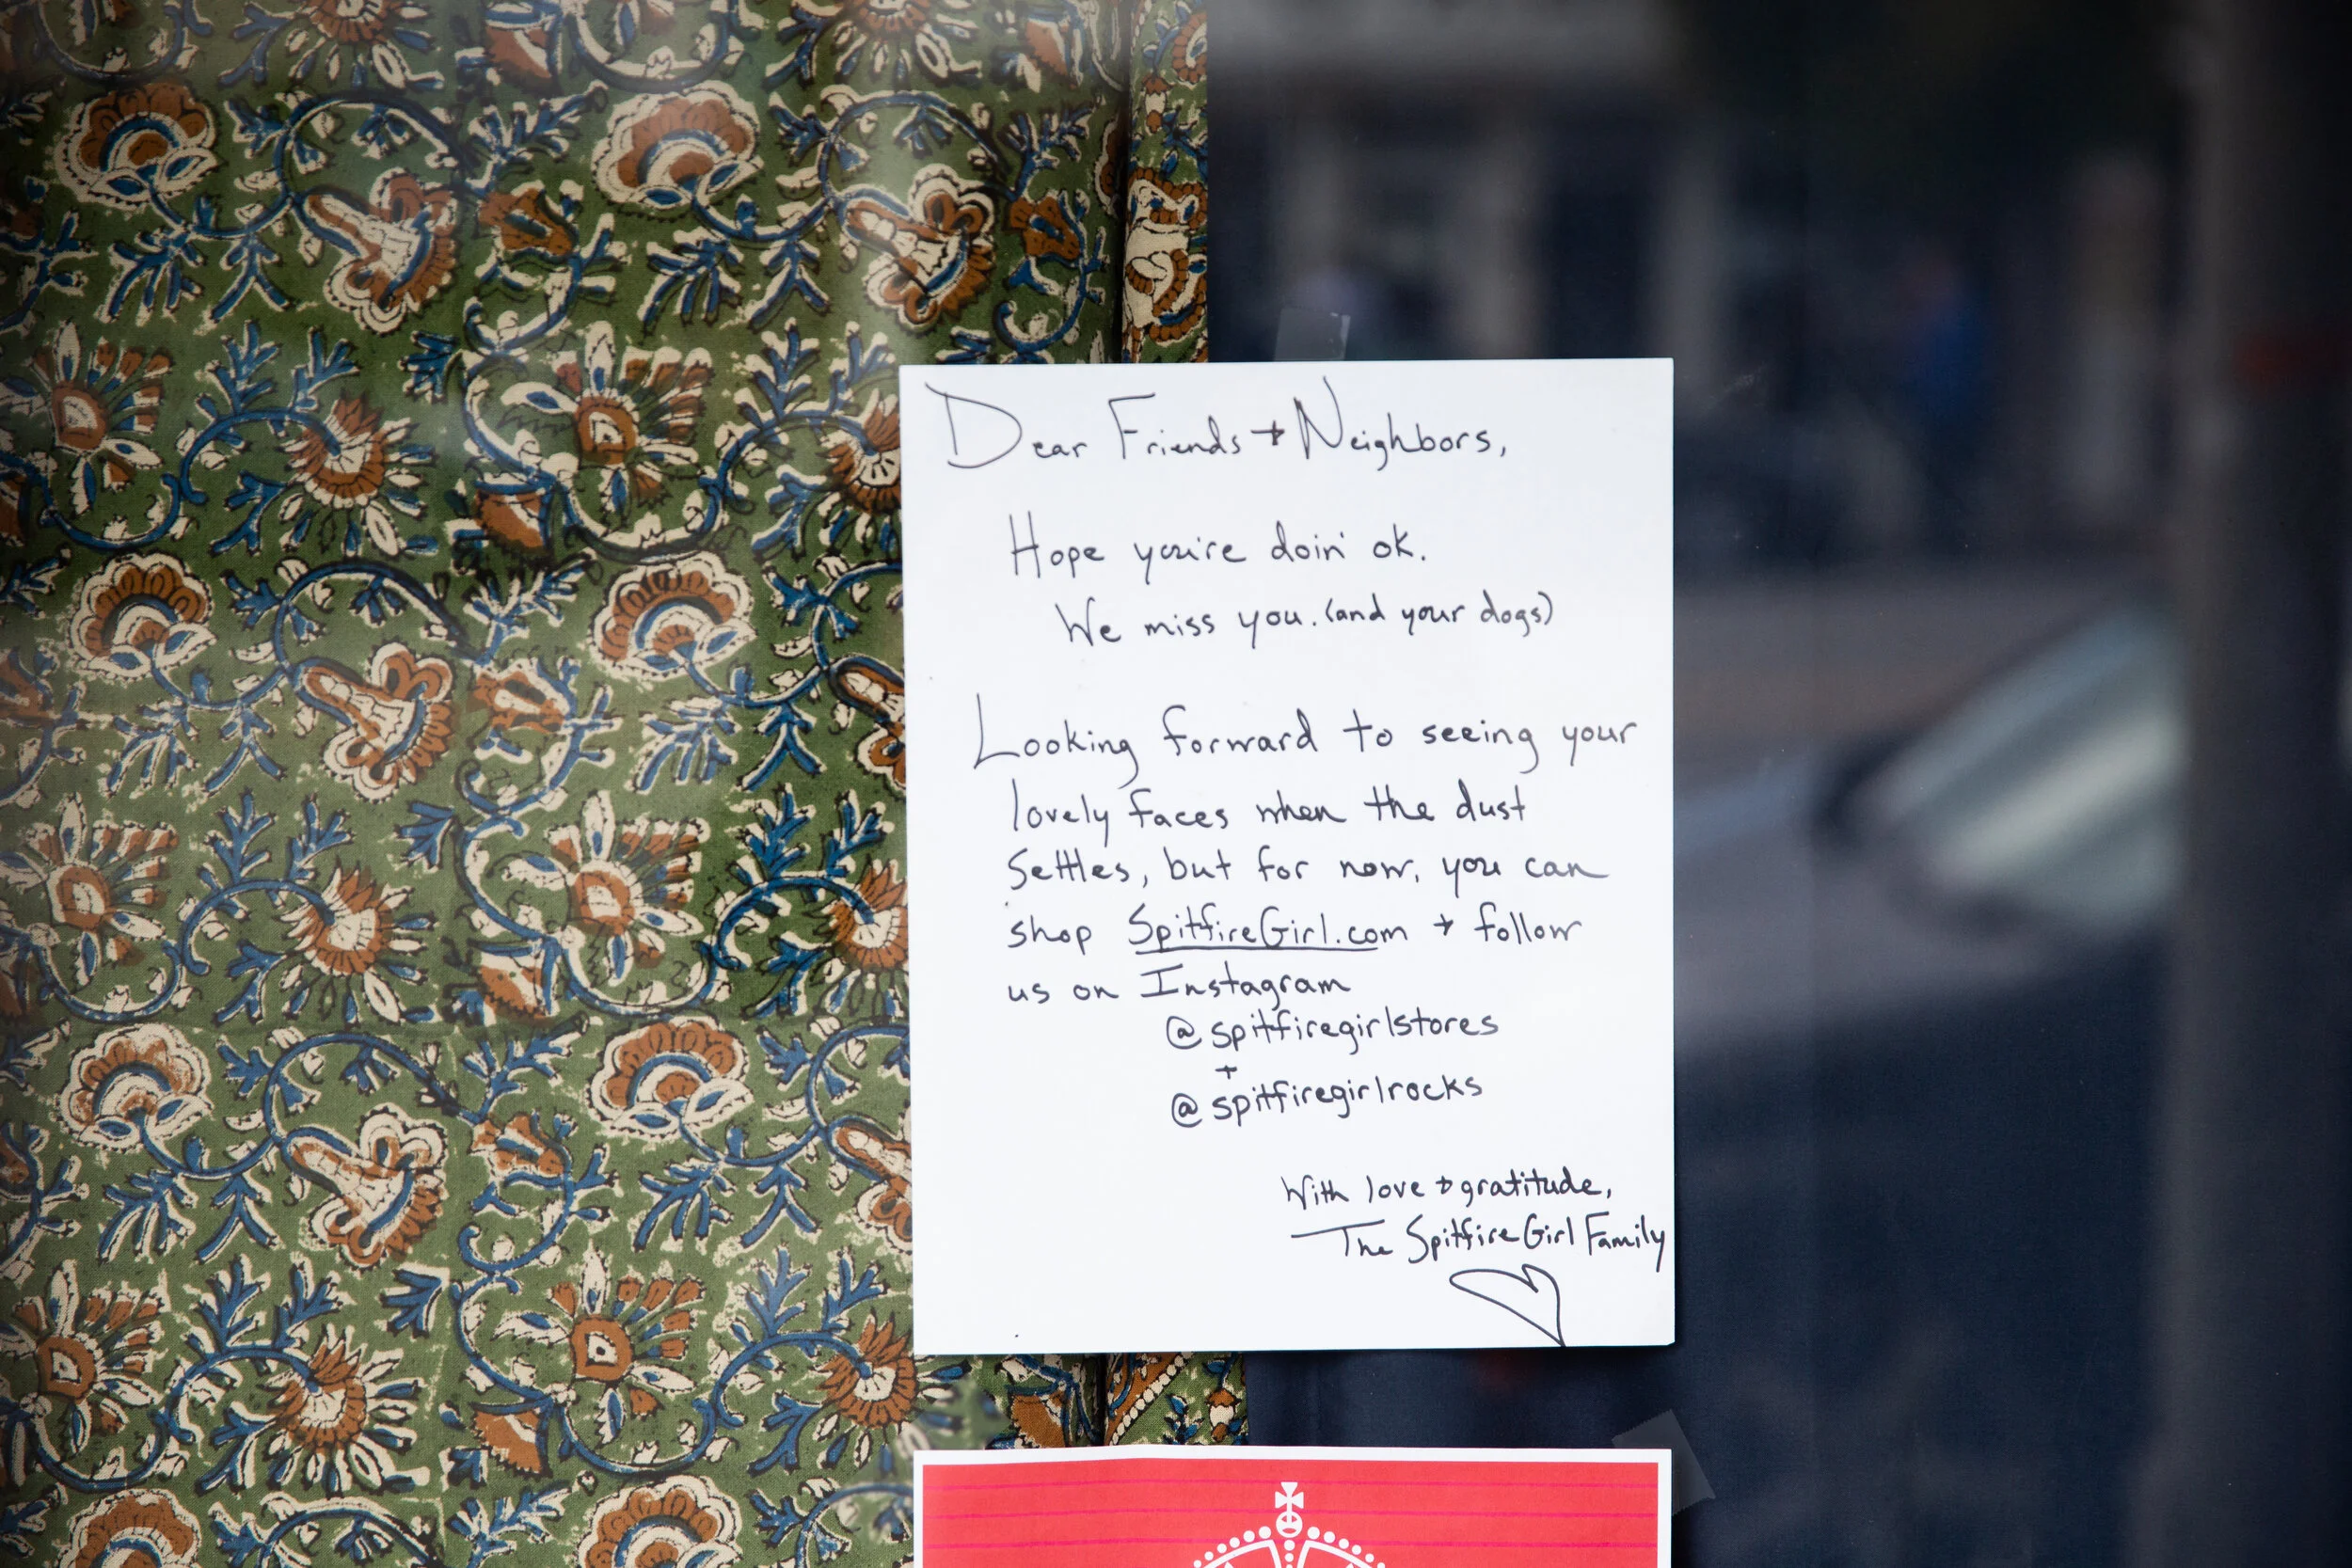 Dear Friends + Neighbors,
Hope you're doin' ok.
We miss you. (and your dogs)
Looking forward to seeing your
lovely faces when the dust
settles, but for now, you can
shop SpitfireGirl.com + follow
us on Instagram
@spitfiregirlstores
+
@spitfiregirlrocks
With love + gratitude,
The Spitfire Girl Family